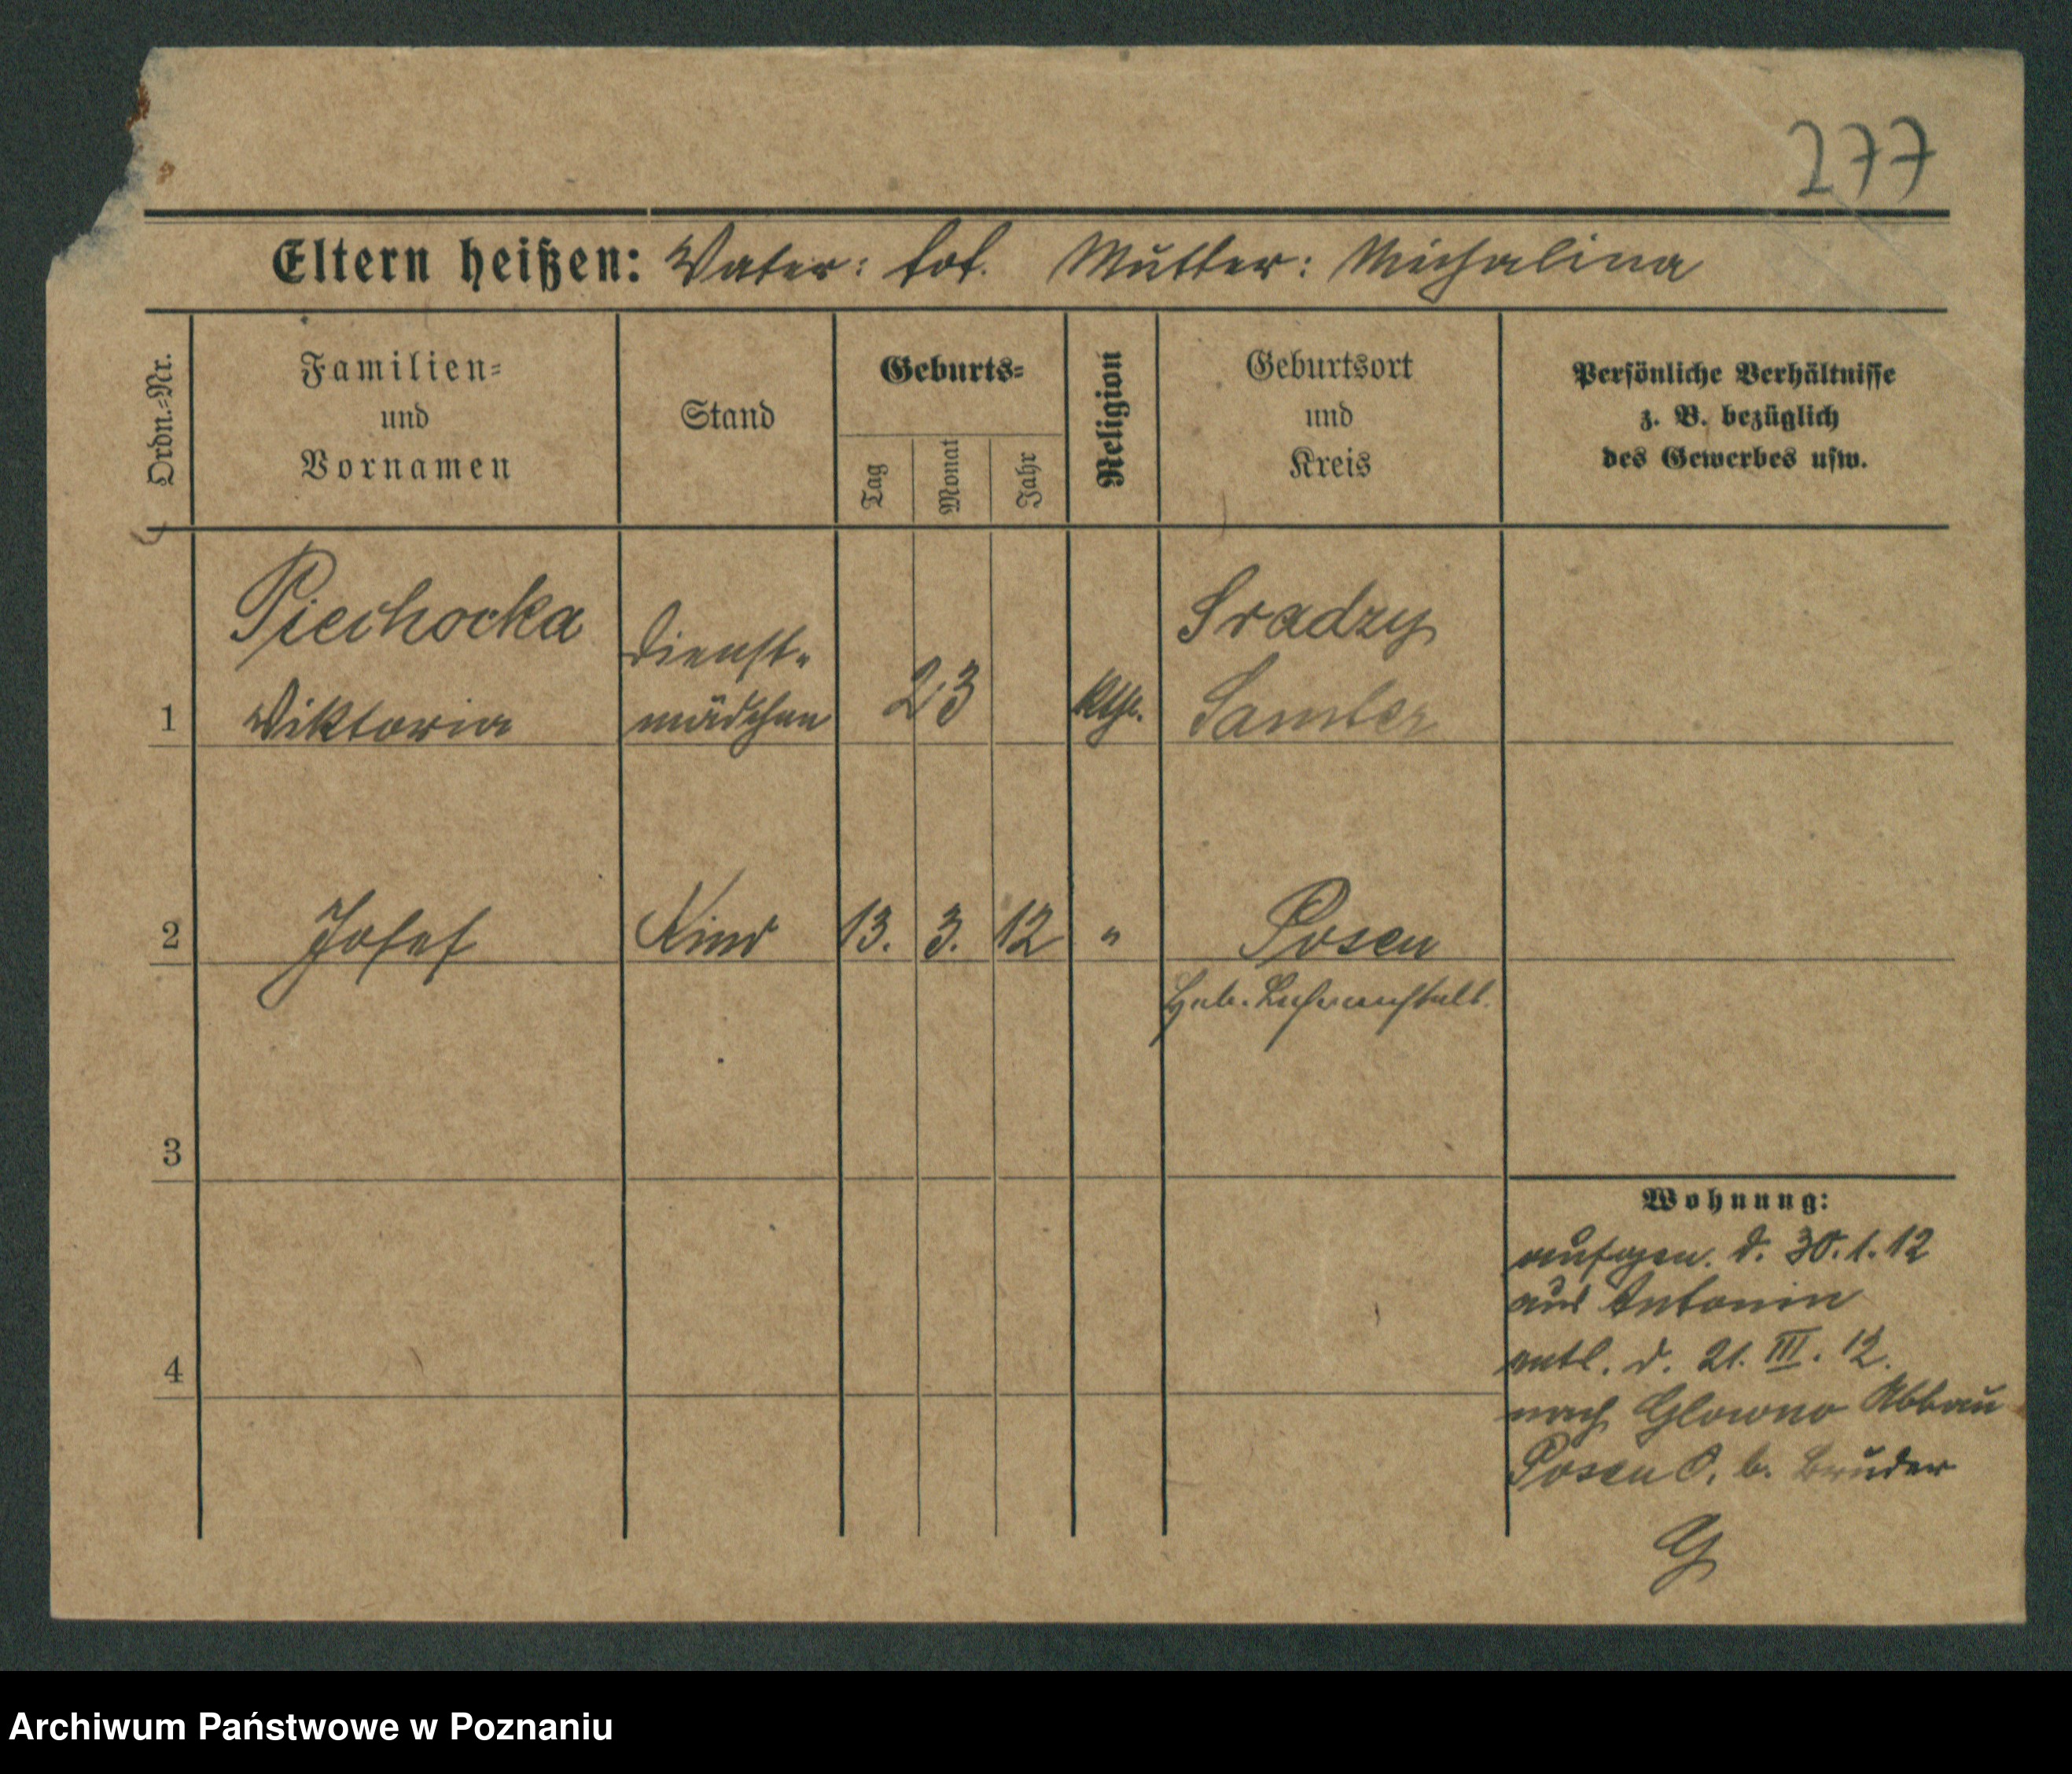 277
Eltern heißen: Vater: tot. Mutter: Michalina
Ordn.-Nr.
Familien-
und
Vornamen
Stand
Geburts-
Tag
Monat
Jahr
Religion
Geburtsort
und
Kreis
Persönliche Verhältnisse
z. B. bezüglich
des Gewerbes usw.
1
Piechocka
Viktoria
Dienst-
mädchen
23
kth.
Sradzy
Samter
2
Josef
Kind
13. 3. 12
"
Posen
Heb. Lehranstalt.
3
4
Wohnung:
aufgen. d. 30.1.12
aus Antonin
entl. d. 21. III. 12.
nach Glowno Abbau
Posen O. b. Bruder
G
Archiwum Państwowe w Poznaniu